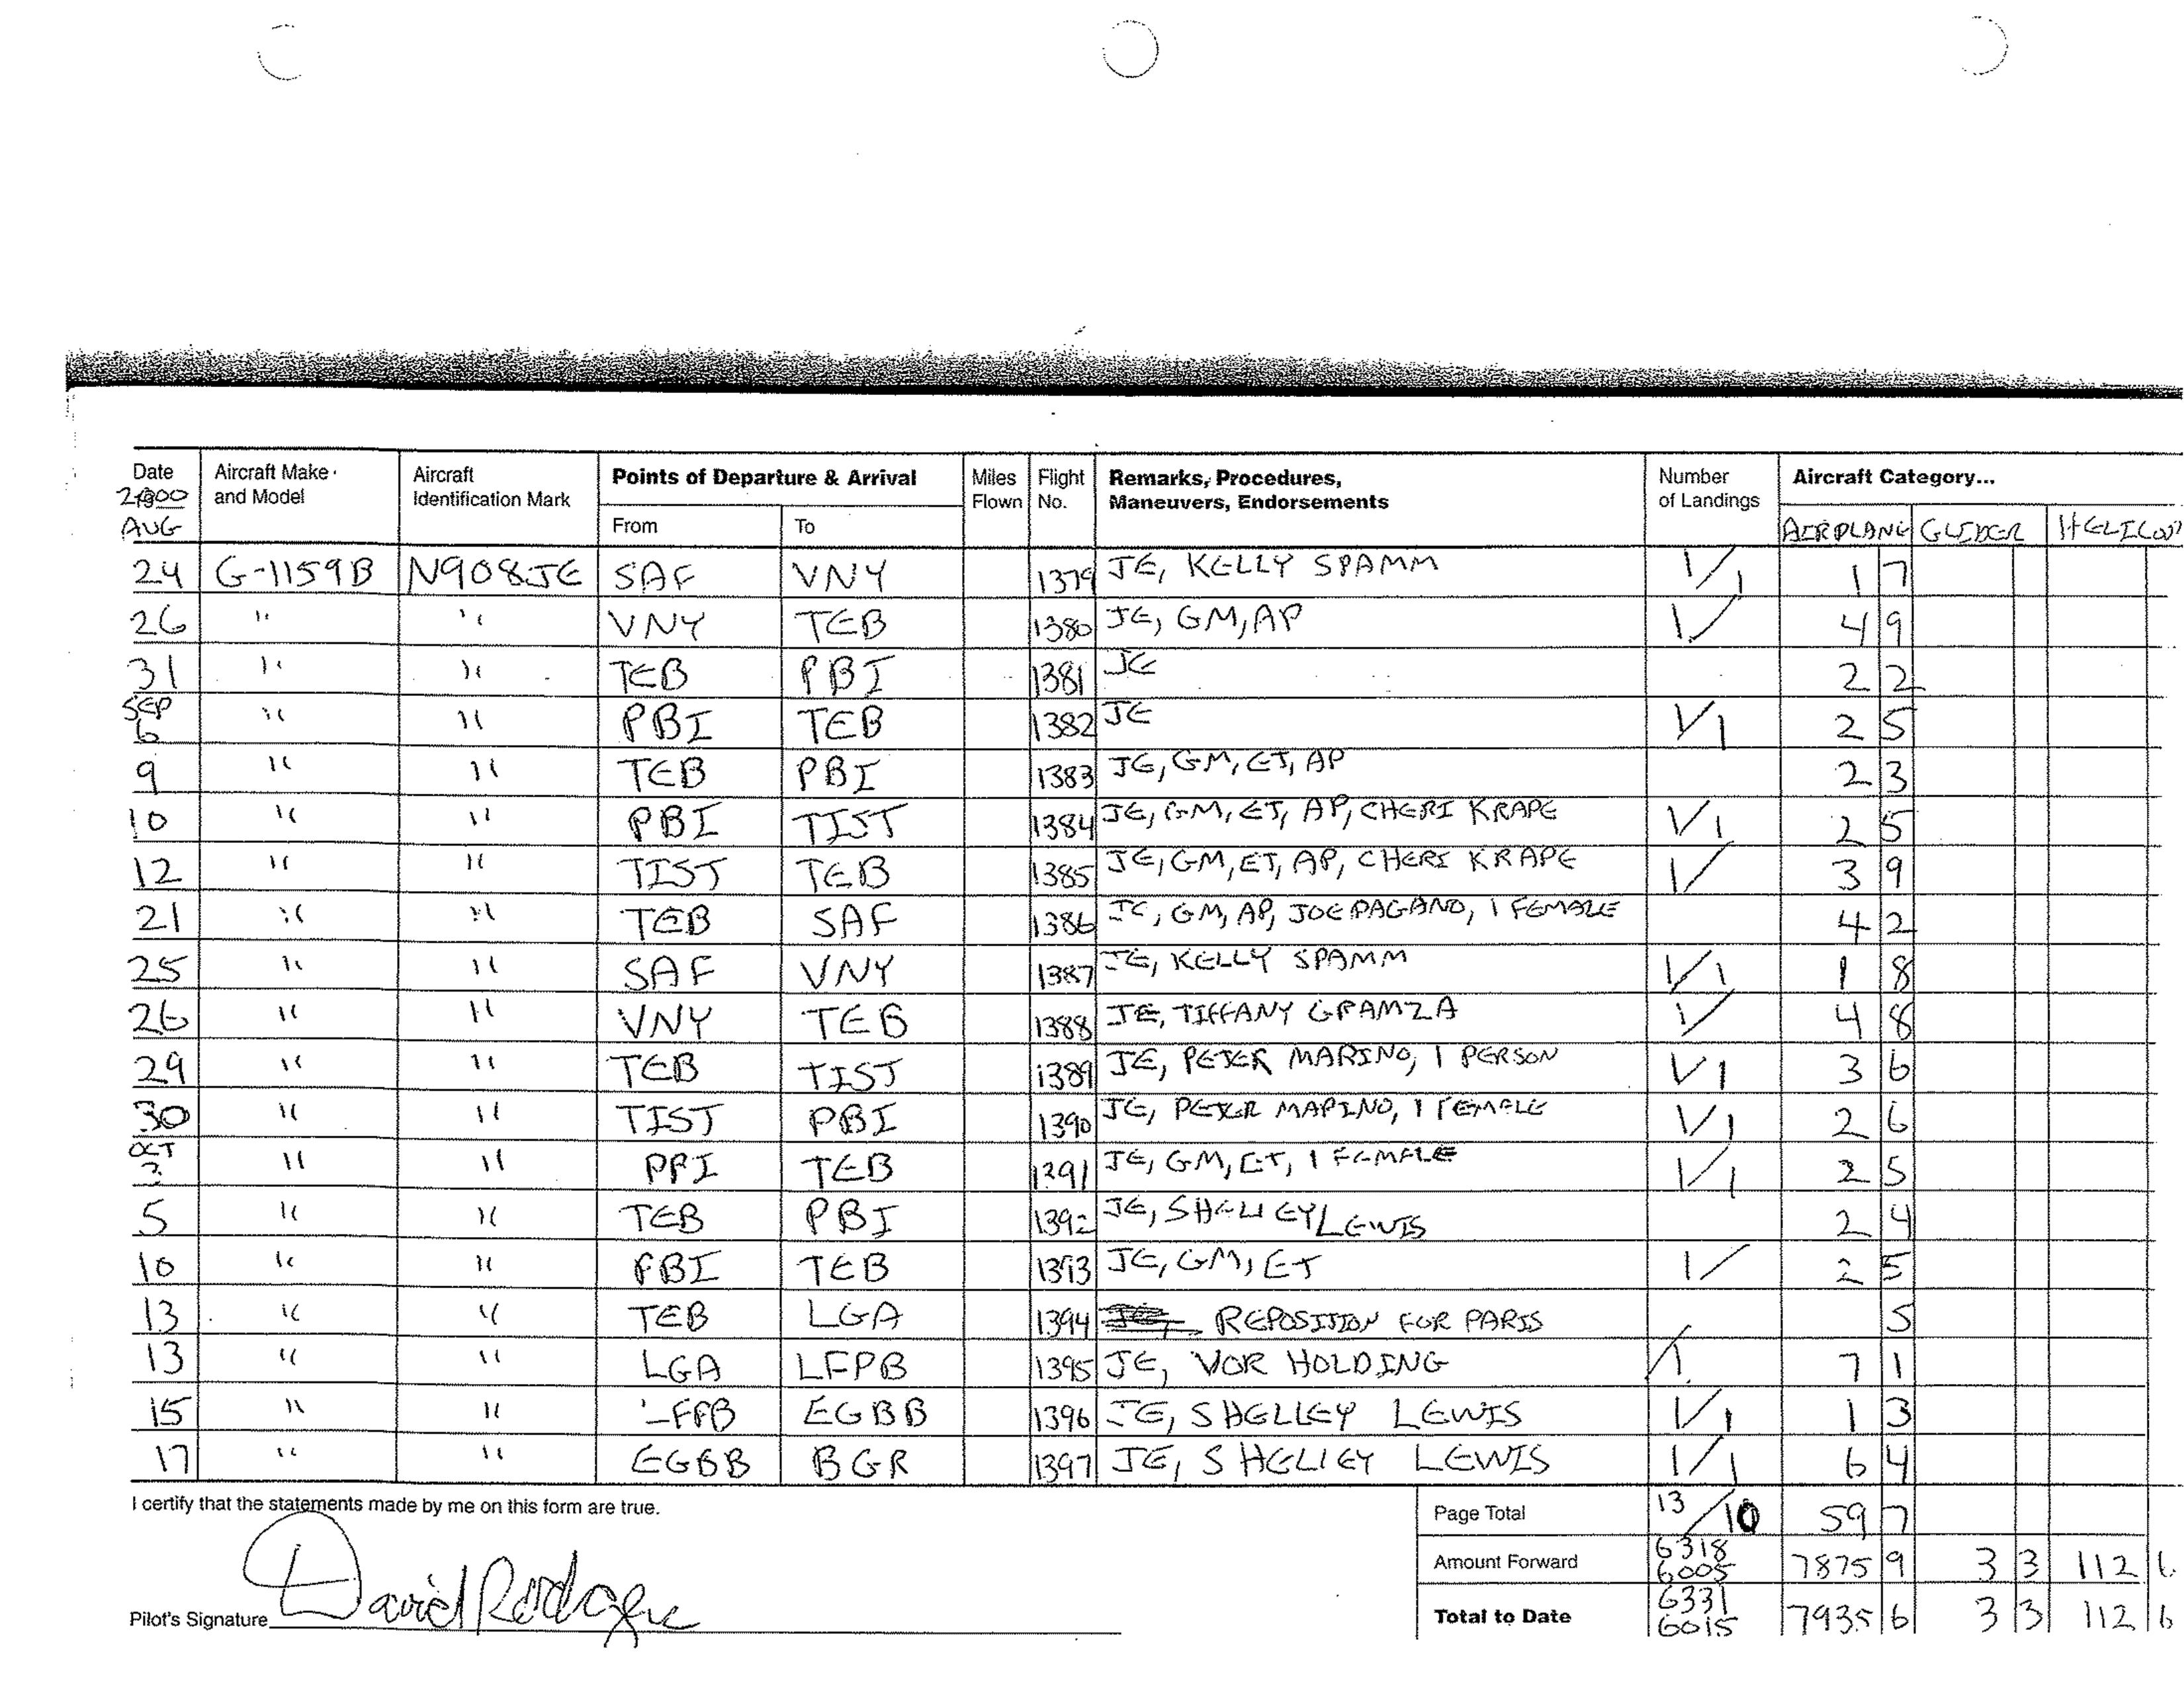 Date Aircraft Make and Model Aircraft Identification Mark Points of Departure & Arrival Miles Flown Flight No. Remarks, Procedures, Maneuvers, Endorsements Number of Landings Aircraft Category...
2000
AUG From To AIRPLANE GLIDER
24 G-1159B N908JE SAF VNY 1379 JE, KELLY SPAMM 1/1 1 7
26 " " VNY TEB 1380 JE, GM, AP 1/ 4 9
31 " " TEB PBI 1381 JE 2 2
SEP
6 " " PBI TEB 1382 JE 1/1 2 5
9 " " TEB PBI 1383 JE, GM, ET, AP 2 3
10 " " PBI TIST 1384 JE, GM, ET, AP, CHERI KRAPE 1/1 2 5
12 " " TIST TEB 1385 JE, GM, ET, AP, CHERI KRAPE 1/ 3 9
21 " " TEB SAF 1386 JE, GM, AP, JOE PAGANO, 1 FEMALE 4 2
25 " " SAF VNY 1387 JE, KELLY SPAMM 1/1 1 8
26 " " VNY TEB 1388 JE, TIFFANY GRAMZA 1/ 4 8
29 " " TEB TIST 1389 JE, PETER MARINO, 1 PERSON 1/1 3 6
30 " " TIST PBI 1390 JE, PETER MARINO, 1 FEMALE 1/1 2 6
OCT
" " PBI TEB 1391 JE, GM, ET, 1 FEMALE 1/1 2 5
5 " " TEB PBI 1392 JE, SHELLEY LEWIS 2 4
10 " " PBI TEB 1393 JE, GM, ET 1/ 2 5
13 " " TEB LGA 1394 REPOSITION FOR PARIS 5
13 " " LGA LFPB 1395 JE, VOR HOLDING /1 7 1
15 " " LFPB EGBB 1396 JE, SHELLEY LEWIS 1/1 1 3
17 " " EGBB BGR 1397 JE, SHELLEY LEWIS 1/1 6 4
I certify that the statements made by me on this form are true. Page Total 13/10 59 7
Amount Forward 6318 6005 7875 9 3 3 112 6
Pilot's Signature David Rodgers Total to Date 6331 6015 7935 6 3 3 112 6